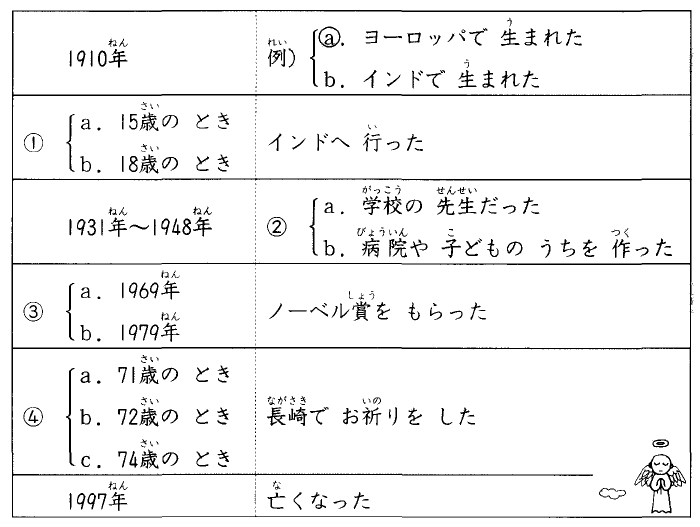 1910年 例) ⓐ. ヨーロッパで 生まれた
b. インドで 生まれた
① a. 15歳の とき インドへ 行った
b. 18歳の とき
1931年～1948年 ② a. 学校の 先生だった
b. 病院や 子どもの うちを 作った
③ a. 1969年 ノーベル賞を もらった
b. 1979年
④ a. 71歳の とき
b. 72歳の とき 長崎で お祈りを した
c. 74歳の とき
1997年 亡くなった